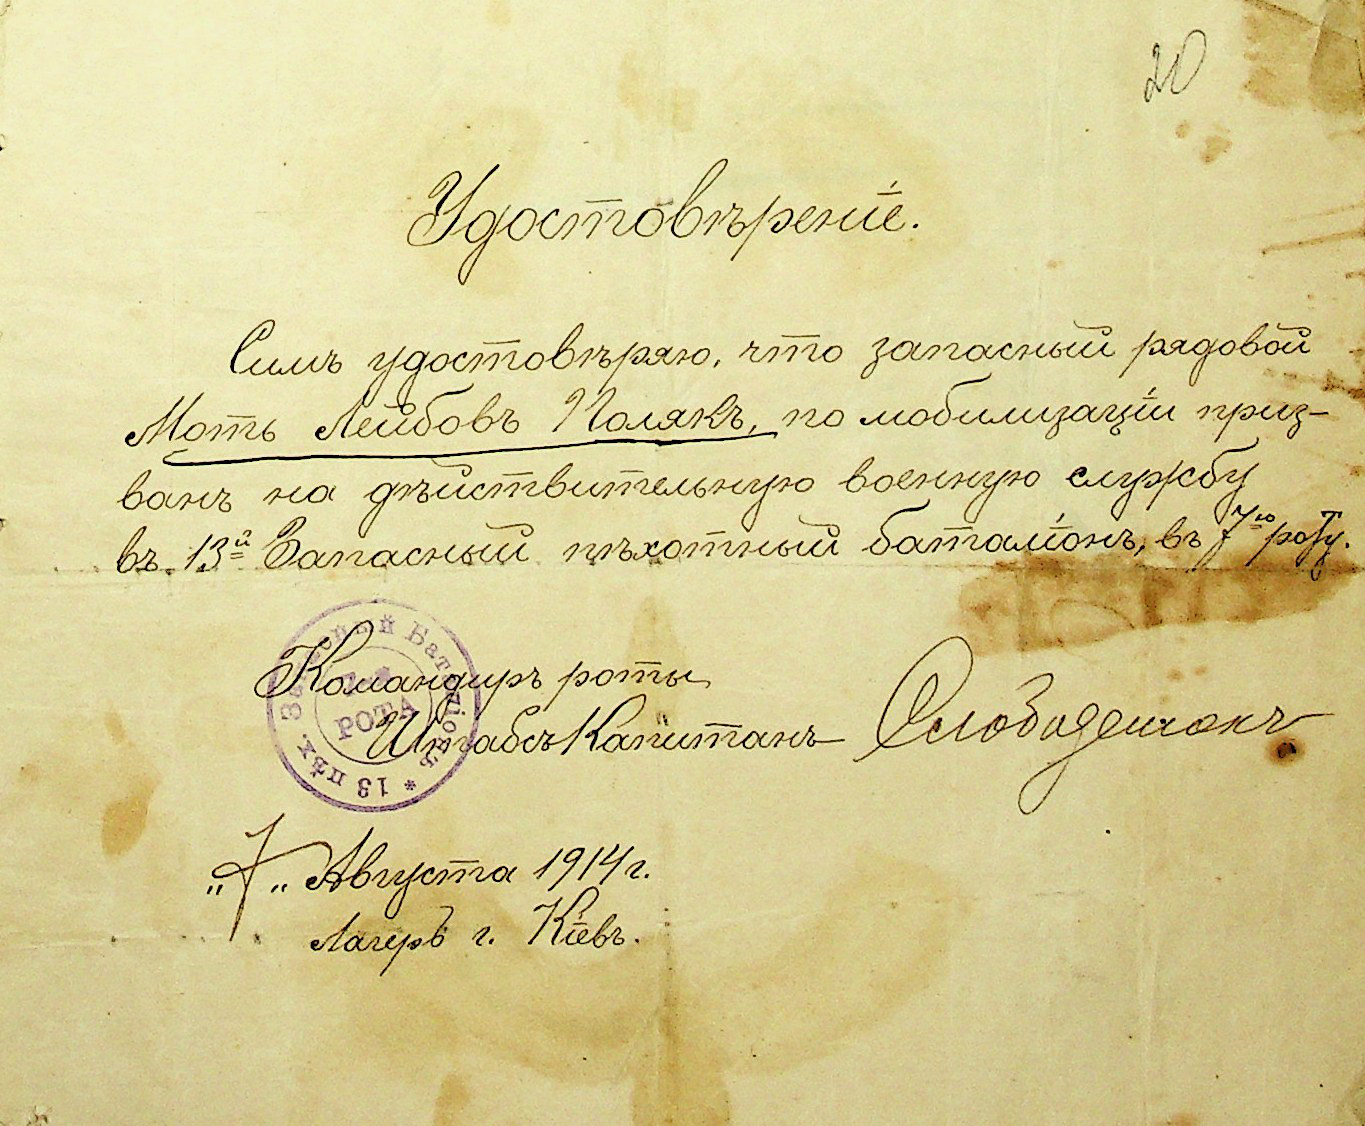 20
Удостовѣреніе.
Симъ удостовѣряю, что запасный рядовой
Моть Лейбовъ Полякъ, по мобилизаціи приз-
ванъ на дѣйствительную военную службу
въ 13й Запасный пѣхотный баталіонъ, въ 7ю роту.
Командиръ роты
Штабсъ Капитанъ
* 13 пѣх. Запасный Баталіонъ
РОТА
"7" Августа 1914 г.
Лагерь г. Кіевъ.